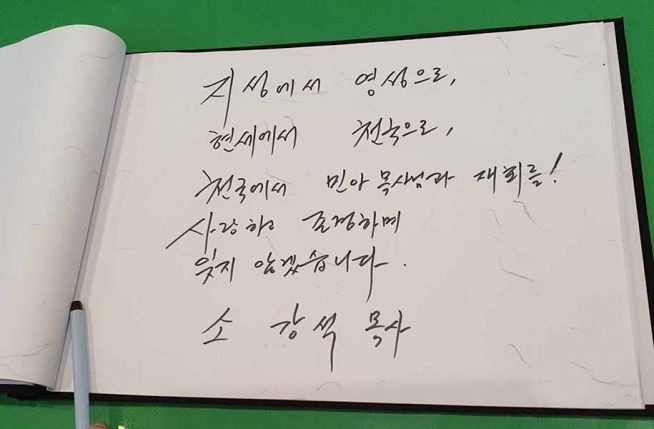 지성에서 영성으로,
현세에서 천국으로,
천국에서 민아 목사님과 재회를!
사랑하고 존경하며
잊지 않겠습니다.
소 강석 목사